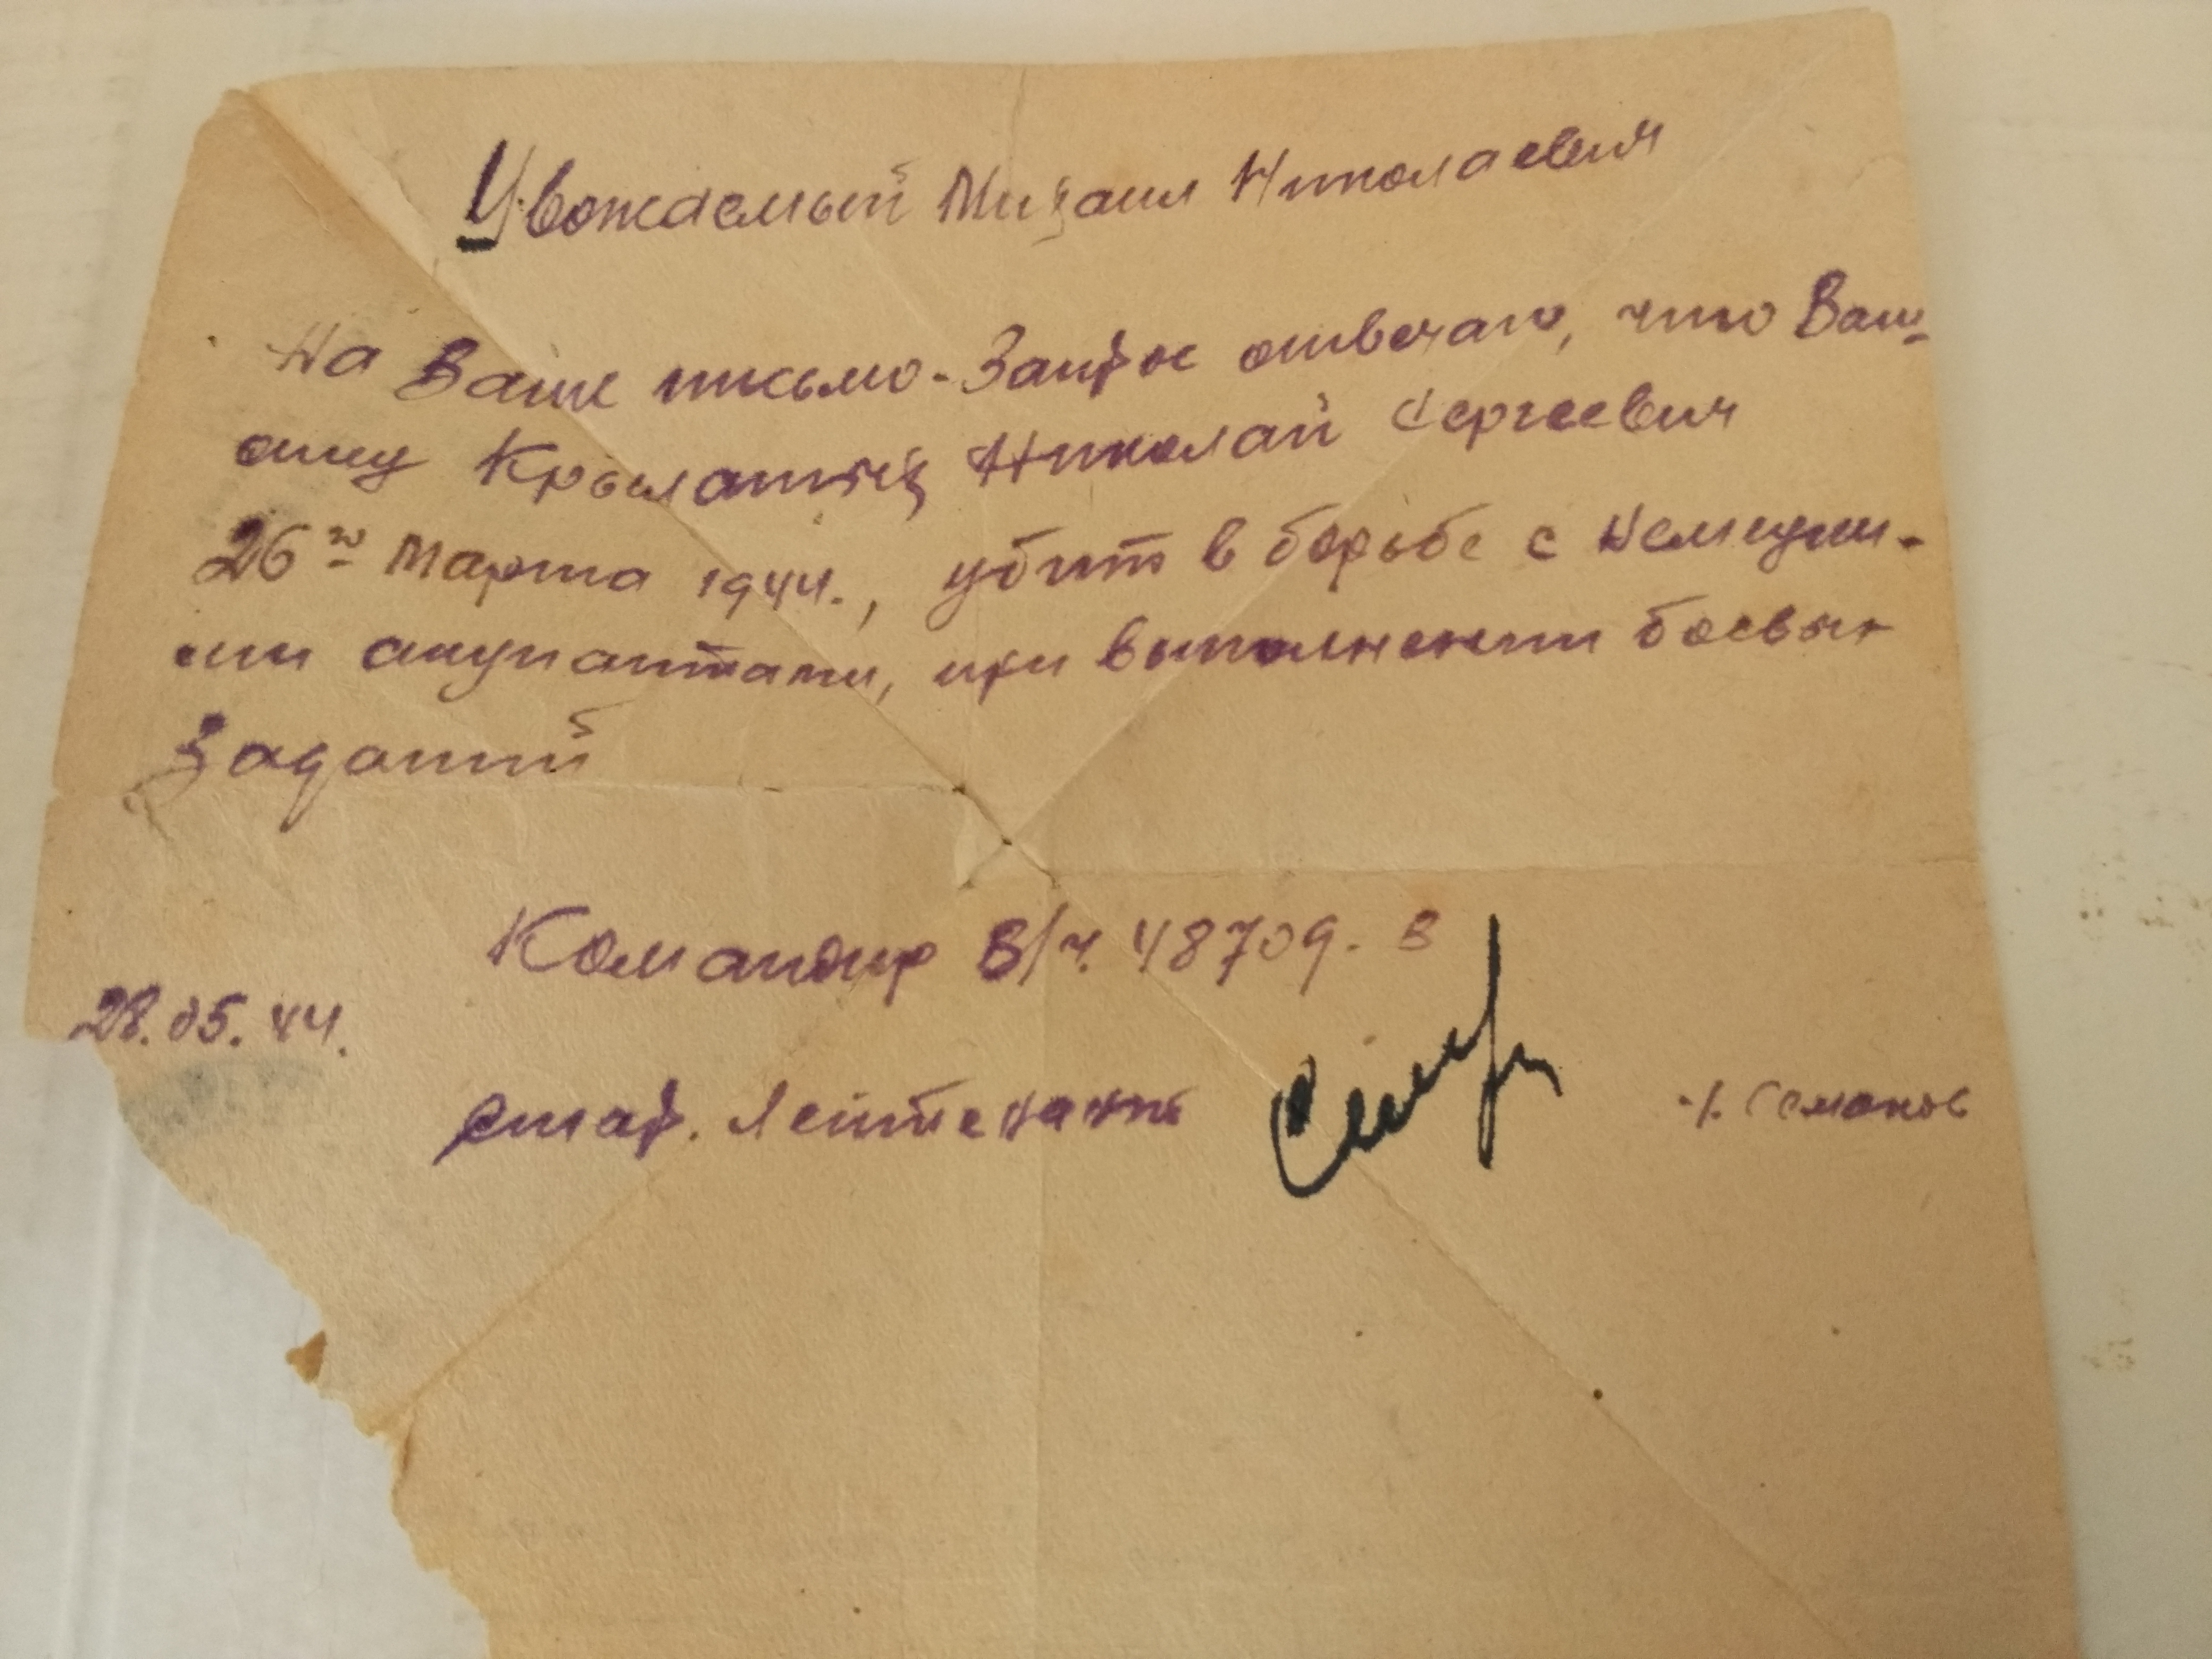 Уважаемый Михаил Николаевич
На Ваше письмо-Запрос отвечаю, что Ваш-
Николай Сергеевич
26го Марта 1944., убит в борьбе с Немецки-
ми акупантами, при выполнении боевых
Заданий
Командир В/ч. 48709. В
28.05.44.
стар. Лейтенант
Семенов